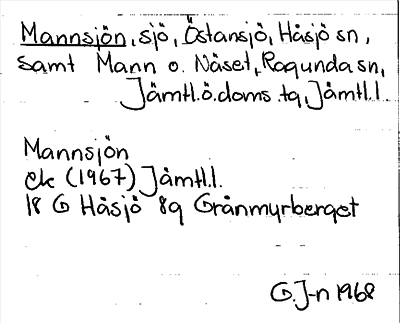 Mannsjön, sjö, Östansjö, Håsjö sn,
samt Mann o. Näset, Ragunda sn,
Jämtl.ö.doms.tg, Jämtl.l
Mannsjön
ek (1967) Jämtl.l.
18 G Håsjö 8g Grånmyrberget
G.J-n 1968